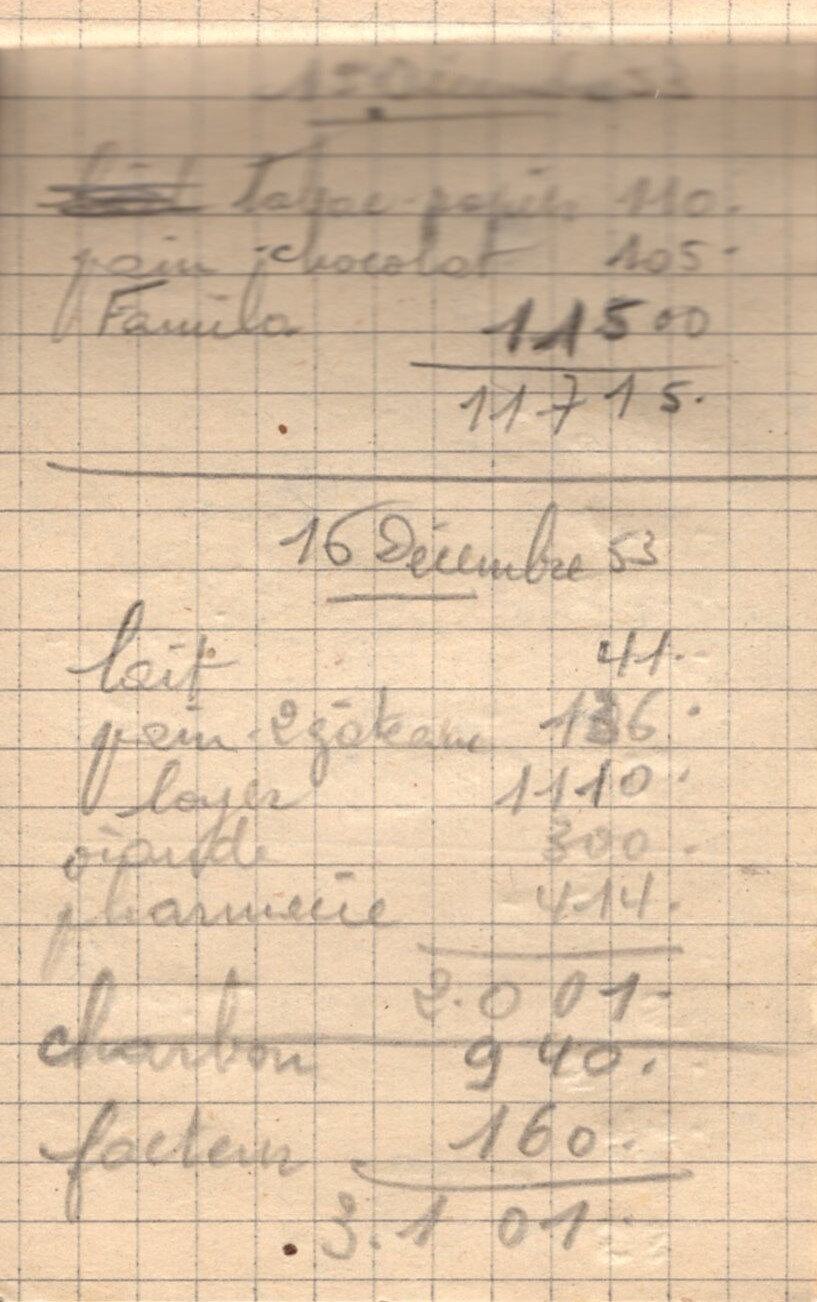 15 Décembre 53
Tabac-papier 110.
pain-chocolat 105-
Famila 11500
11715.
16 Décembre 53
lait 41.
pain-2gâteaux 136.
loyer 1110.
viande 300.
pharmacie 414.
2.001-
charbon 940.
facteur 160.
3.101.